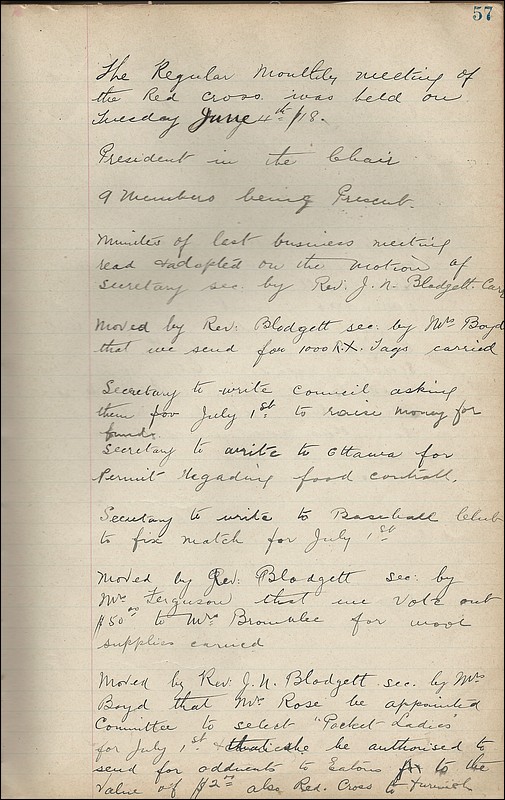 57
The Regular Monthly meeting of
the Red Cross was held on
Tuesday June 4th /18.
President in the Chair
9 Members being Present.
Minutes of last business meeting
read & adopted on the motion of
Secretary sec. by Rev: J. N. Blodgett. Car
Moved by Rev: Blodgett sec. by Mrs Boyd
that we send for 1000 R.X. Tags carried
Secretary to write Council asking
them for July 1st to raise money for
funds.
Secretary to write to Ottawa for
Permit regading food controll.
Secretary to write to Baseball Club
to fix match for July 1st
Moved by Rev: Blodgett sec: by
Mrs Ferguson that we vote out
$50.00 to Mrs Bromilee for wool
supplies carried
Moved by Rev: J. N. Blodgett sec. by Mrs
Boyd that Mrs Rose be appointed
Committee to select "Packet Ladies"
for July 1st & she be authorised to
send for to Eatons to the
value of $2.00 also Red. Cross to furnish